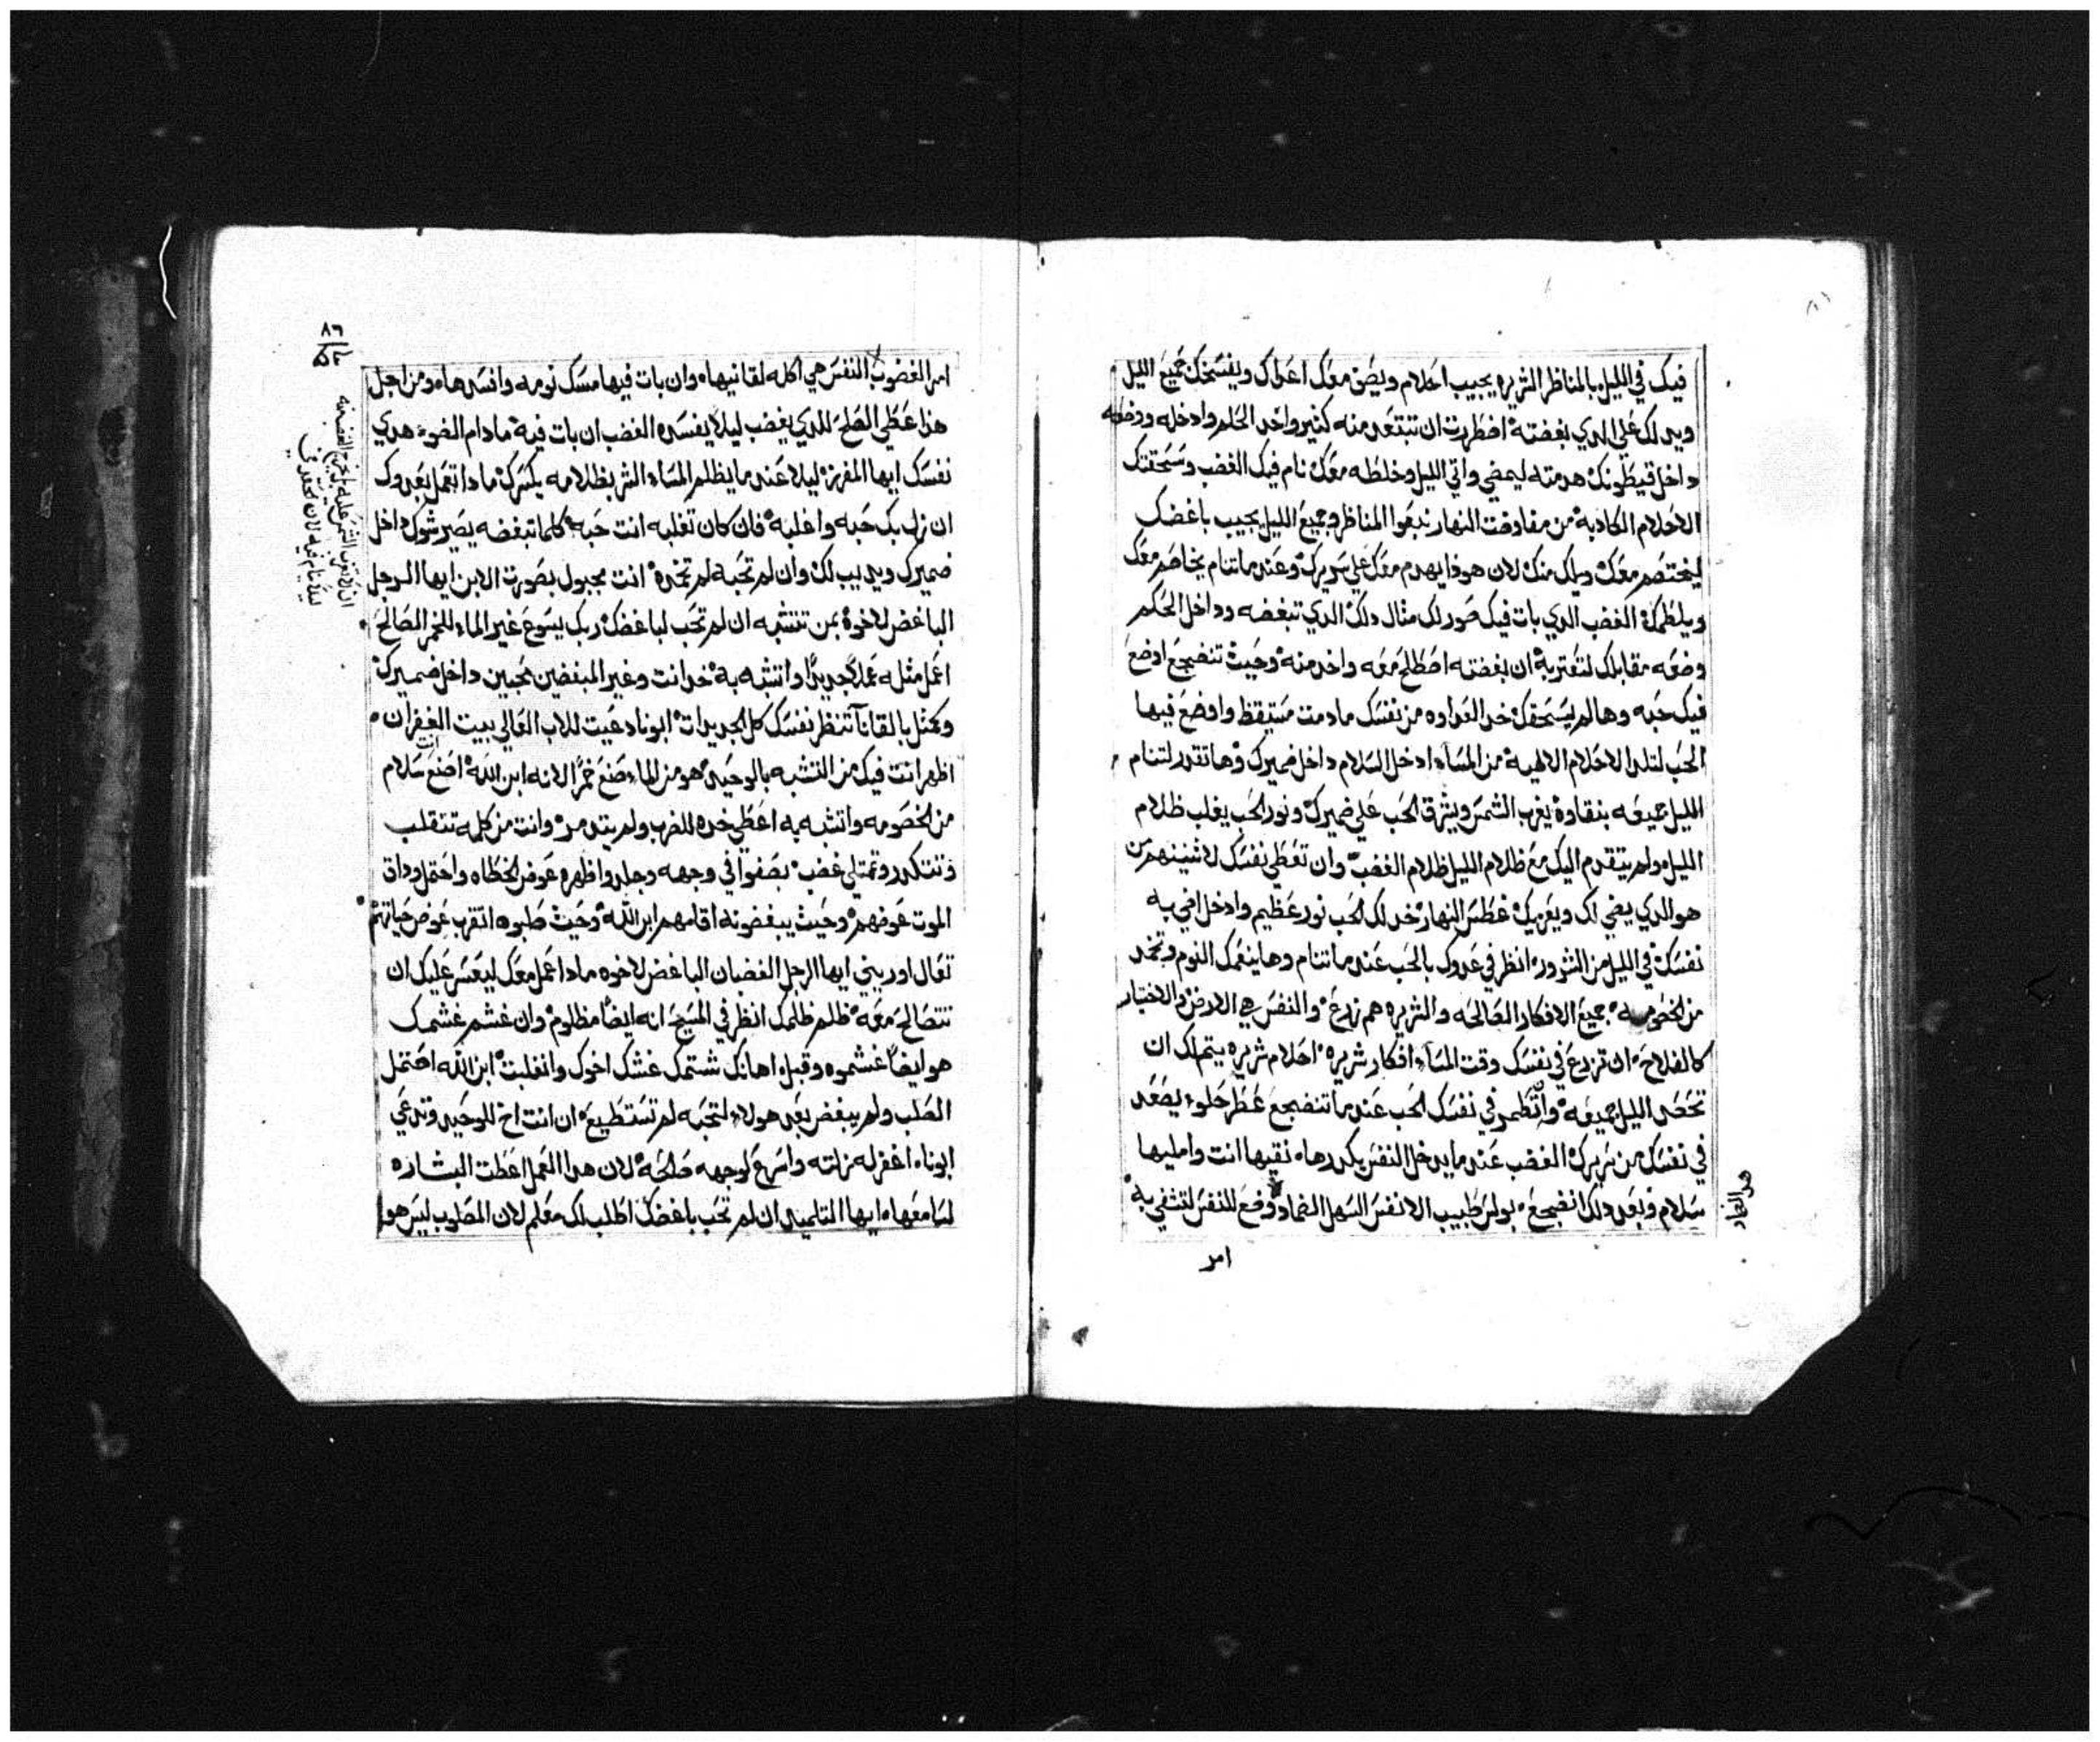 فيك في الليل بالمناظر الشريره يجيب احلام ويصق معك اعداك ويفسخك جميع الليل
ويدلك علي الدي بغضتة اضطريت ان تبتعد منه كتير واخد الحلم وادخله ووضعه
داخل قيطونك هدمته ليمضي واتي الليل وخلطه معك نام فيك الغضب وسحقتك
الاحلام الكادبة من مفاوضت النهار نبعوا المناظر وجميع الليل يجيب باغضك
ليختصم معك وياك منك لان هوذا يهدم معك علي سريرك وعندما تنام يخاصم معك
ويلطمك الغضب الدي بات فيك صور لك مثال دلك الدي تبغضه وداخل الحكم
وضعه مقابلك لتعتر به ان بغضته اصطلح معه واخد منه وحيث تنضجع اوضع
فيك حبه وها لم يسحقك خد العداوه من نفسك ما دمت مستيقظ واوضع فيها
الحب لتلد الاحلام الالهية من المساء ادخل السلام داخل ضميرك وها تقدر لتنام
الليل جميعه بنقاوة يغرب الشمس ويشرق الحب علي ضميرك ونور الحب يغلب ظلام
الليل ولم يتقدم اليك مع ظلام الليل ظلام الغضب وان تعطي نفسك لاثنينهم من
هو الدي يضي لك ويعزيك غطس النهار خد لك الحب نور عظيم وادخل اضي به
نفسك في الليل من الشرور انظر في عدوك بالحب عندما تنام وها ينعمك النوم وتخد
من الخصومه جميع الافكار الصالحه والشريره هم زرع والنفس هي الارض والاختيار
كالفلاح ان تزرع في نفسك وقت المساء افكار شريره احلام شريره يتم لك ان
تحصد الليل جميعه وان تطمر في نفسك الحب عندما تنضجع عطر حلو يصعد
في نفسك من سريرك الغضب عندما يدخل النفس يكدرها نقيها انت وامليها
سلام وبعد دلك انضجع بولس طبيب الانفس السهل الضماد وضع للنفس لتشفي به
هد الضماد
امر
٨٦
امر الغضوب النفس هي اكله لقانيها وان بات فيها مسك نومه وافسدها ومن اجل
هذا عطي الصلح للدي يغضب ليلا يفسده الغضب ان بات فية ما دام الضوء هدي
نفسك ايها المفرزة ليلا عندما يظلم المساء الشر بظلامه يكسرك مادا تعمل بعدوك
ان زل بك حبه واغلبة فان كان تغلبه انت حبه كلما تبغضه يصير شوك داخل
ضميرك ويديب لك وان لم تحبه لم تخده انت مجبول بصورت الابن ايها الرجل
الباغض لاخوة بمن تتشبه ان لم تحب لباغضك ربك يسوع غير الماء للخمر الصالح
اعمل مثله عملاً جديداً واتشبه به خد انت وغير المبغضين محبين داخل ضميرك
وكمثل بالقانا تنظر نفسك كل الجديدات ابونا دعيت للاب العالي بيت الغفران
اظهر انت فيك من التشبه بالوحيد هو من الماء صنع خمرًا لانه ابن الله اصنع انت سلام
من الخصومه واتشبه به اعطي خده للضرب ولم يتدمر وانت من كلمه تتقلب
وتتكدر وتمتلي غضب بصفوا في وجهه وجلد واظهره عوض الخطاه واحتمل وداق
الموت عوضهم وحيث يبغضونه اقامهم ابن الله وحيث صلبوه اتقرب عوض حياتهم
تعال اوريني ايها الرجل الغضبان الباغض لاخوه مادا عمل معك ليعسر عليك ان
تتصالح معه ظلم ظلمك انظر في المسيح انه ايضاً مظلوم وان غشم غشمك
هو ايضاً غشموه وقبل اهانك شتمك غشك اخوك وانغلبت ابن الله احتمل
الصلب ولم يبغض بعد هولاء لتحبه لم تستطيع ان انت اخ للوحيد وتدعي
ابونا اغفر له زلته واسرع لوجهه صالحة لان هدا العمل اعطت البشاره
لسامعها ايها التلميد ان لم تحب باغضك اطلب لك معلم لان المصلوب ليس هو